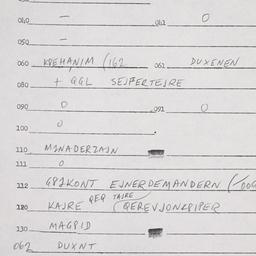 040 — 041 0
050 —
060 KPEHANIM (162 061 DUXENEN
080 + GGL SEJFERTEJRE
090 0 091 0
100 0
110 MJNADERZAJN
111 0
112 GP2KONT EJNERDEMANDERN
120 KAJRE QEQ TAJRE (QEREVJONLPIPER
130 MAGPID
062 DUXNT